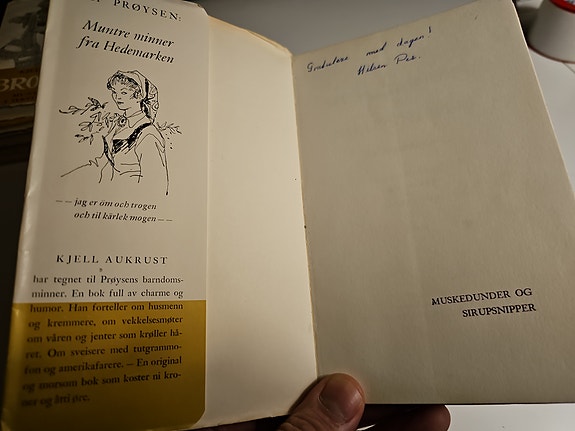 PRØYSEN:
Muntre minner
fra Hedemarken
—— jag er öm och trogen
och til kärlek mogen ——
KJELL AUKRUST
har tegnet til Prøysens barndoms-
minner. En bok full av charme og
humor. Han forteller om husmenn
og kremmere, om vekkelsesmøter
om våren og jenter som krøller hå-
ret. Om sveisere med tutgrammo-
fon og amerikafarere. — En original
og morsom bok som koster ni kro-
ner og åtti øre.
Gratulerer med dagen!
Hilsen Per.
MUSKEDUNDER OG
SIRUPSNIPPER
BRØ